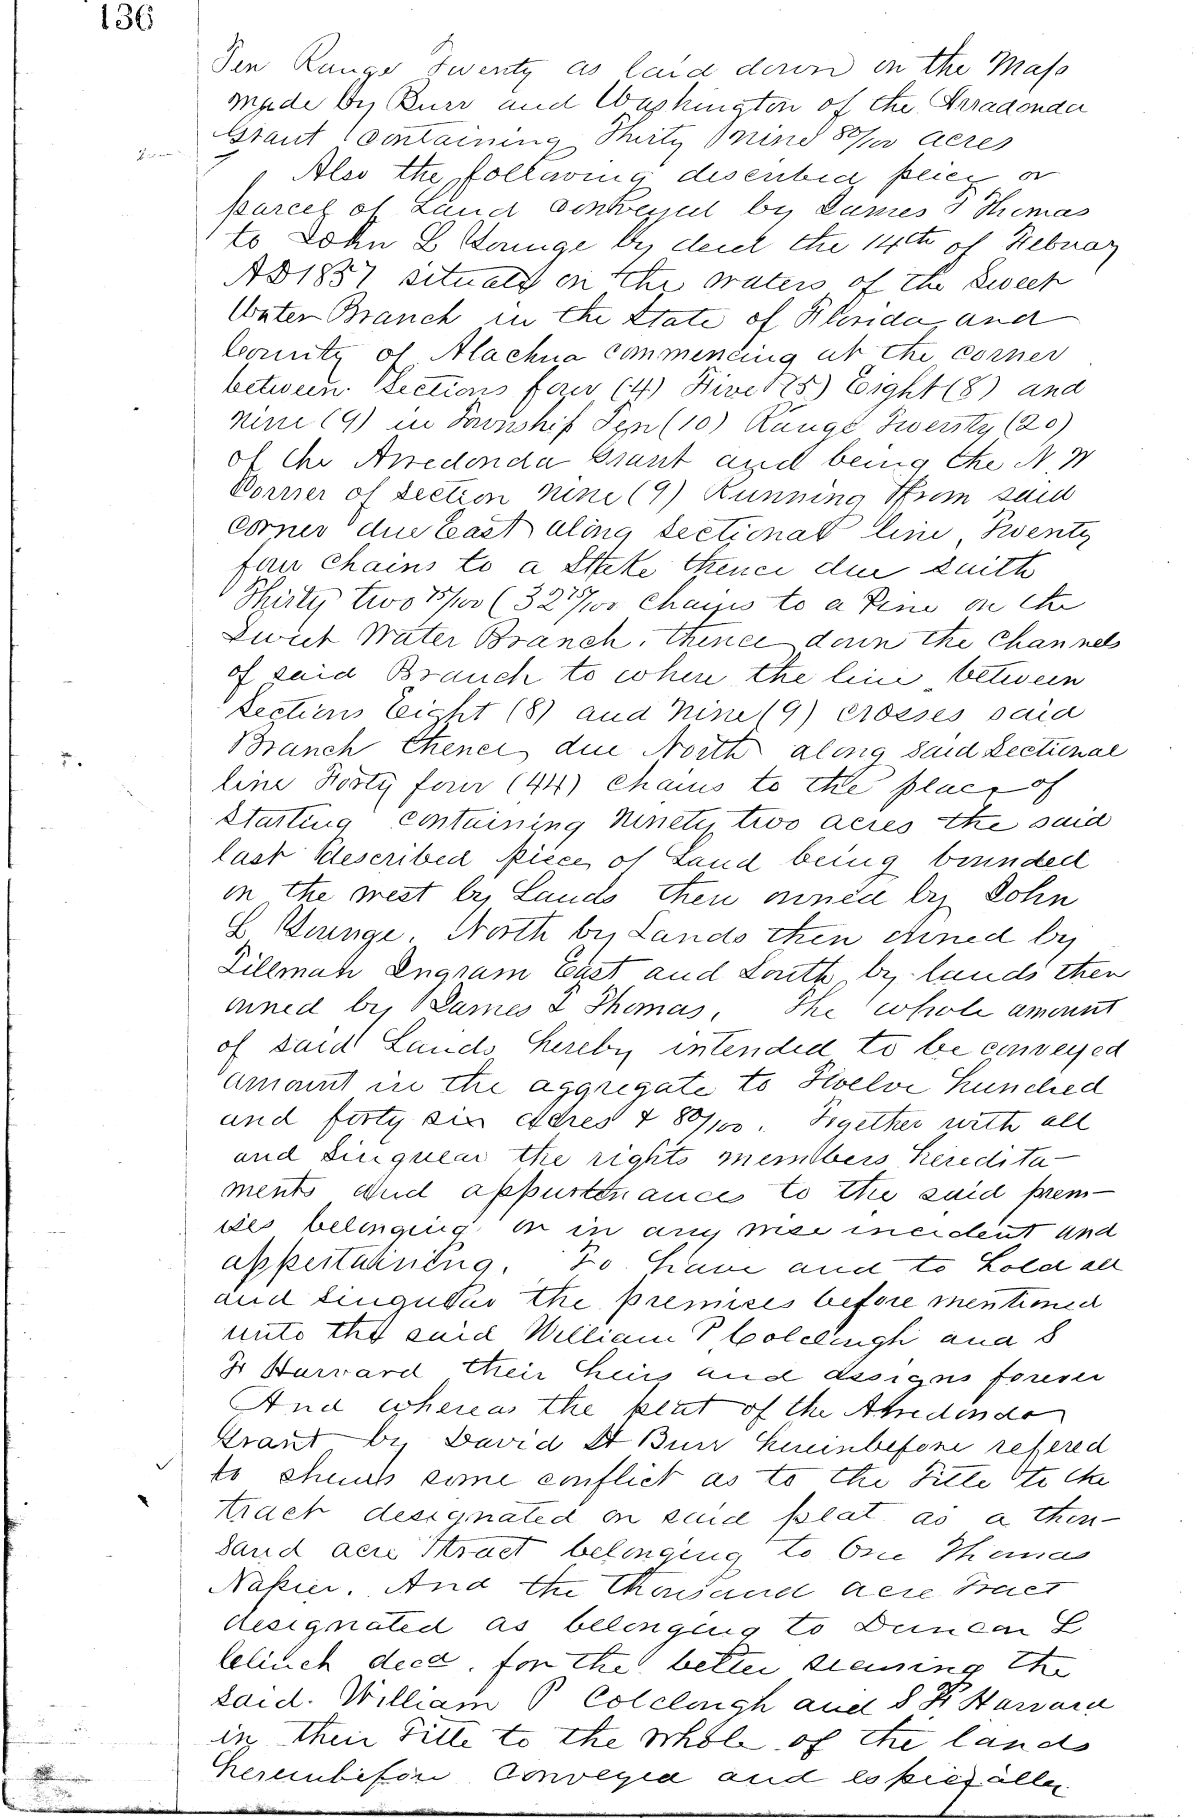 136
Ten Range Twenty as laid down on the Maps
made by Burr and Washington of the Arradonda
Grant containing Thirty nine 80/100 acres
Also the following described peice or
parcel of Land conveyed by James T Thomas
to John L Younge by deed the 14th of Februay
AD 1857 situate on the waters of the Sweet
Water Branch in the State of Florida and
County of Alachua commencing at the corner
between Sections four (4) Five (5) Eight (8) and
nine (9) in Township Ten (10) Range Twenty (20)
of the Arredonda Grant and being the N. W
Corner of Section nine (9) Running From said
corner due East along Sectional line Twenty
four chains to a Stake thence due South
Thirty two 75/100 (32 75/100 chains to a Pine on the
Sweet Water Branch. thence down the Channels
of said Branch to where the line between
Sections Eight (8) and Nine (9) crosses said
Branch thence due North along said Sectional
line Forty four (44) chains to the place of
Starting containing Ninety two acres the said
last described piece of Land being bounded
on the west by Lands then owned by John
L Younge. North by Lands then owned by
Tillman Ingram East and South by lands then
owned by James T Thomas. The whole amount
of said Lands hereby intended to be conveyed
amount in the aggregate to Twelve hundred
and forty six acres & 80/100. Together with all
and Singular the rights members heredita-
ments and appurtenances to the said prem-
ises belonging or in any wise incident and
appertaining. To have and to hold all
and Singular the premises before mentioned
unto the said William P Colclough and S
F Harvard their heirs and assigns forever
And whereas the plat of the Arredondo
Grant by David H Burr hereinbefore refered
to shows some conflict as to the Title to the
tract designated on said plat as a thou-
sand acre Tract belonging to One Thomas
Napier. And the thousand acre Tract
designated as belonging to Duncan L
Clinch decd. for the better securing the
said. William P Colclough and S F Harvard
in their Title to the whole of the lands
hereinbefore Conveyed and especially